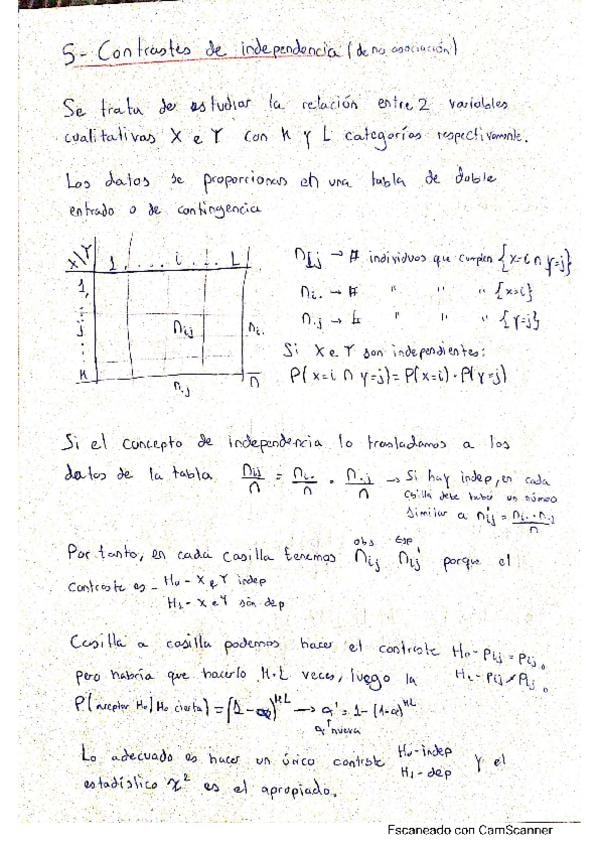 5- Contrastes de independencia (de no asociación)
Se trata de estudiar la relación entre 2 variables
cualitativas X e Y con K y L categorías respectivamente.
Los datos se proporcionan en una tabla de doble
entrada o de contingencia
X\Y 1 . . . . i . . . L
1
:
j
:
K
nij ni.
n.j n
nij → # individuos que cumplen {x=i ∩ y=j}
ni. → # " " " {x=i}
n.j → # " " " {y=j}
Si X e Y son independientes:
P(x=i ∩ y=j) = P(x=i) · P(y=j)
Si el concepto de independencia lo trasladamos a los
datos de la tabla nij/n = ni./n · n.j/n → Si hay indep, en cada
casilla debe haber un número
similar a n'ij = ni. · n.j / n
obs esp
Por tanto, en cada casilla tenemos nij n'ij porque el
contraste es - H0 - X e Y indep
H1 - X e Y son dep
Casilla a casilla podemos hacer el contraste H0 - pij = pij0
pero habría que hacerlo K·L veces, luego la H1 - pij ≠ pij0
P(aceptar H0 | H0 cierta) = (1-α)^KL → α' = 1-(1-α)^KL
α nueva
Lo adecuado es hacer un único contraste H0-indep y el
H1-dep
estadístico χ² es el apropiado.
Escaneado con CamScanner